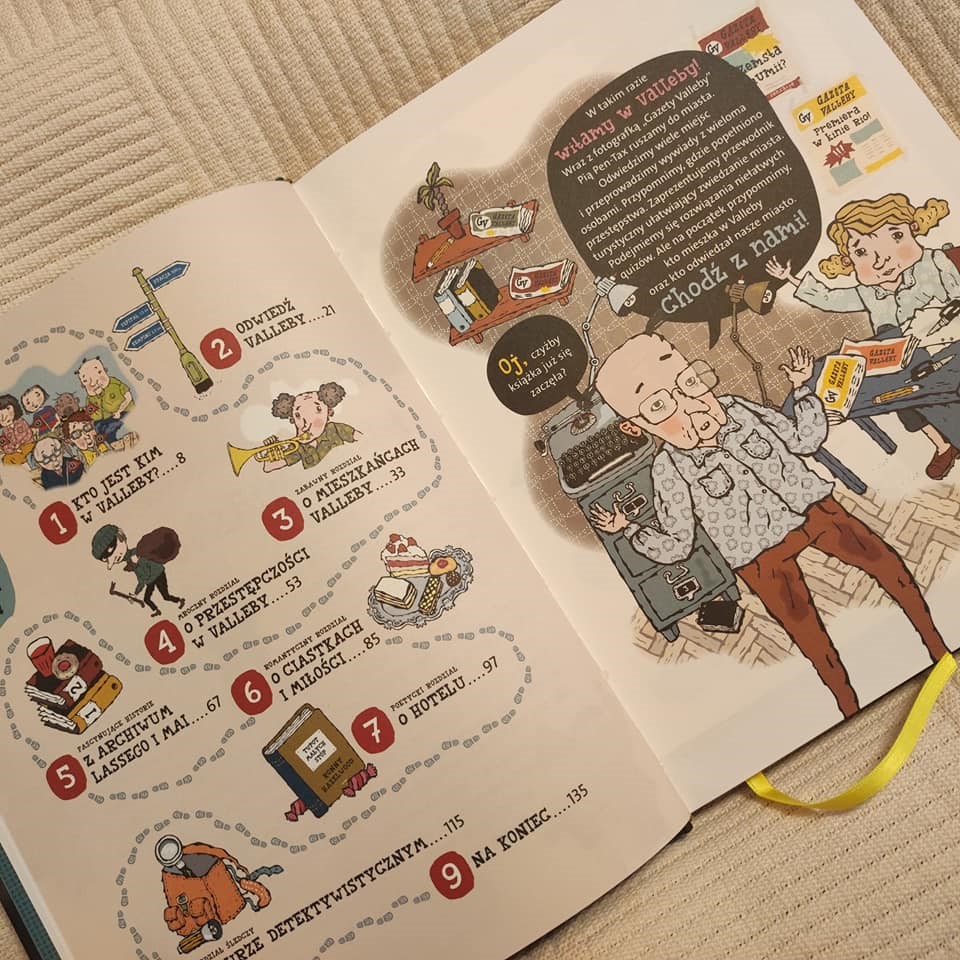 1
KTO JEST KIM
W VALLEBY?....8
2
ODWIEDŹ
VALLEBY....21
3
ZABAWNY ROZDZIAŁ
O MIESZKAŃCACH
VALLEBY....33
4
MROCZNY ROZDZIAŁ
O PRZESTĘPCZOŚCI
W VALLEBY....53
5
FASCYNUJĄCE HISTORIE
Z ARCHIWUM
LASSEGO I MAI....67
1
2
6
ROMANTYCZNY ROZDZIAŁ
O CIASTKACH
I MIŁOŚCI....85
7
POETYCKI ROZDZIAŁ
O HOTELU....97
TUPOT
MAŁYCH
STÓP
RONNY
HAZELWOOD
ŚLEDCZY
DETEKTYWISTYCZNYM....115
9
NA KONIEC....135
W takim razie
witamy w Valleby!
Wraz z fotografką „Gazety Valleby”
Pią Pen-Tax ruszamy do miasta.
Odwiedzimy wiele miejsc
i przeprowadzimy wywiady z wieloma
osobami. Przypomnimy, gdzie popełniono
przestępstwa. Zaprezentujemy przewodnik
turystyczny ułatwiający zwiedzanie miasta.
Podejmiemy się rozwiązania niełatwych
quizów. Ale na początek przypomnimy,
kto mieszka w Valleby
oraz kto odwiedzał nasze miasto.
Chodź z nami!
Oj, czyżby
książka już się
zaczęła?
GV
GAZETA
VALLEBY
GV
GAZETA
VALLEBY
Premiera
w kinie Rio!
GV
GAZETA
VALLEBY
GV
GAZETA
VALLEBY
GAZETA
VALLEBY